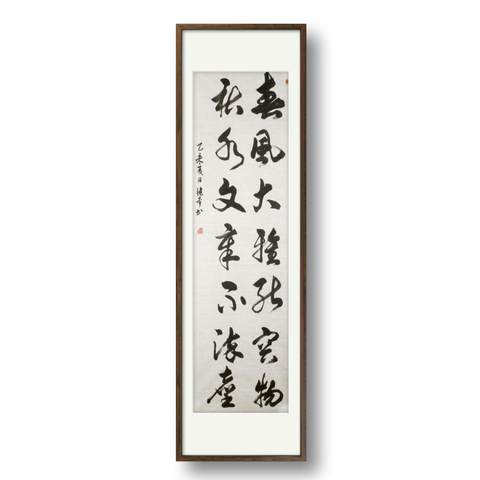 春風大雅能容物
秋水文章不染塵
乙未夏日